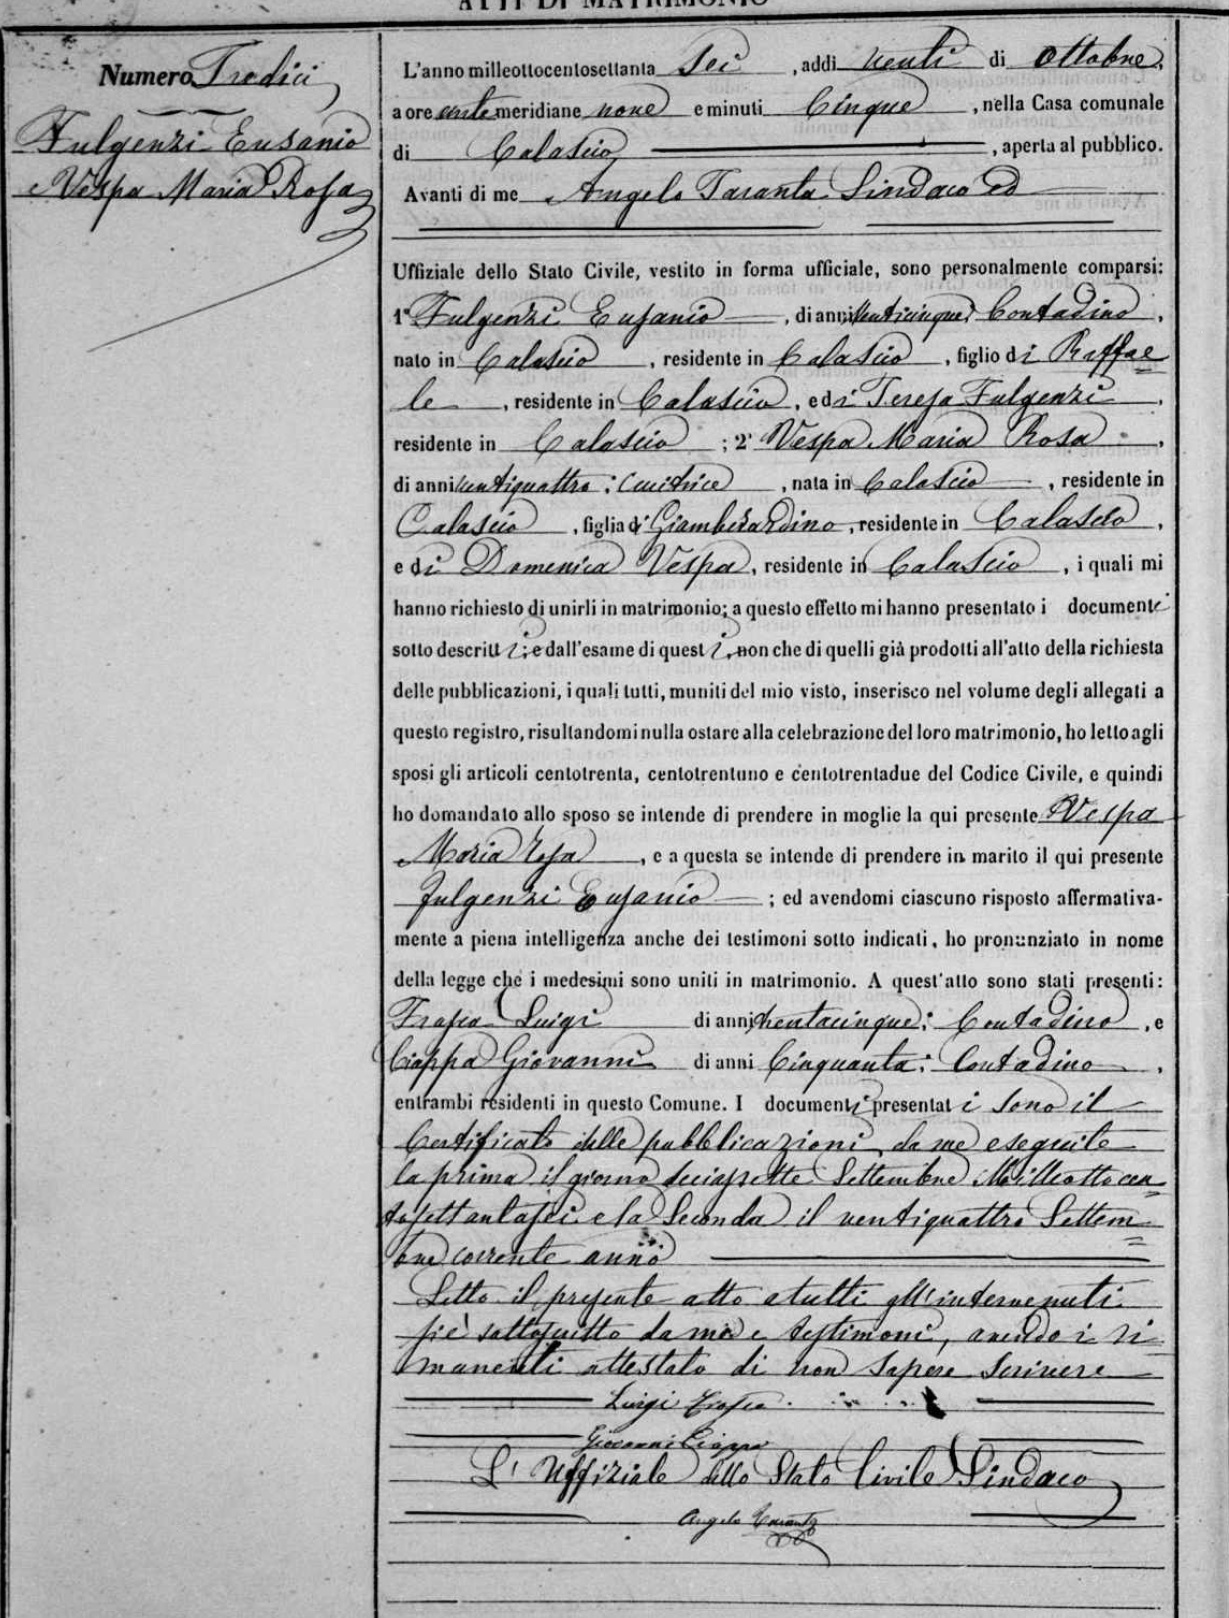 ATTI DI MATRIMONIO
Numero Tredici
Fulgenzi Eusanio
e Vespa Maria Rosa
L'anno milleottocentosettanta Sei , addi venti di Ottobre,
a ore ante meridiane nove e minuti Cinque , nella Casa comunale
di Calascio , aperta al pubblico.
Avanti di me Angelo Taranta Sindaco ed
Uffiziale dello Stato Civile, vestito in forma ufficiale, sono personalmente comparsi:
1° Fulgenzi Eusanio , di anni venticinque; Contadino ,
nato in Calascio , residente in Calascio , figlio di Raffae
le , residente in Calascio , e di Teresa Fulgenzi ,
residente in Calascio ; 2° Vespa Maria Rosa ,
di anni ventiquattro; Cucitrice , nata in Calascio , residente in
Calascio , figlia di Giamberardino , residente in Calascio ,
e di Domenica Vespa , residente in Calascio , i quali mi
hanno richiesto di unirli in matrimonio; a questo effetto mi hanno presentato i documenti
sotto descritti; e dall'esame di questi, non che di quelli già prodotti all'atto della richiesta
delle pubblicazioni, i quali tutti, muniti del mio visto, inserisco nel volume degli allegati a
questo registro, risultandomi nulla ostare alla celebrazione del loro matrimonio, ho letto agli
sposi gli articoli centotrenta, centotrentuno e centotrentadue del Codice Civile, e quindi
ho domandato allo sposo se intende di prendere in moglie la qui presente Vespa
Maria Rosa , e a questa se intende di prendere in marito il qui presente
Fulgenzi Eusanio ; ed avendomi ciascuno risposto affermativa-
mente a piena intelligenza anche dei testimoni sotto indicati, ho pronunziato in nome
della legge che i medesimi sono uniti in matrimonio. A quest'atto sono stati presenti:
Frasca Luigi di anni trentacinque; Contadino , e
Ciappa Giovanni di anni Cinquanta; Contadino ,
entrambi residenti in questo Comune. I documenti presentati sono il
Certificato delle pubblicazioni da me eseguite
la prima il giorno deciassette Settembre Milleottocen
tosettantasei e la Seconda il ventiquattro Settem
bre corrente anno
Letto il presente atto a tutti gl'intervenuti
si è sottoscritto da me e testimoni, avendo i ri
manenti attestato di non sapere scrivere
Luigi Frasca
Giovanni Ciappa
L'Uffiziale dello Stato Civile Sindaco
Angelo Taranta